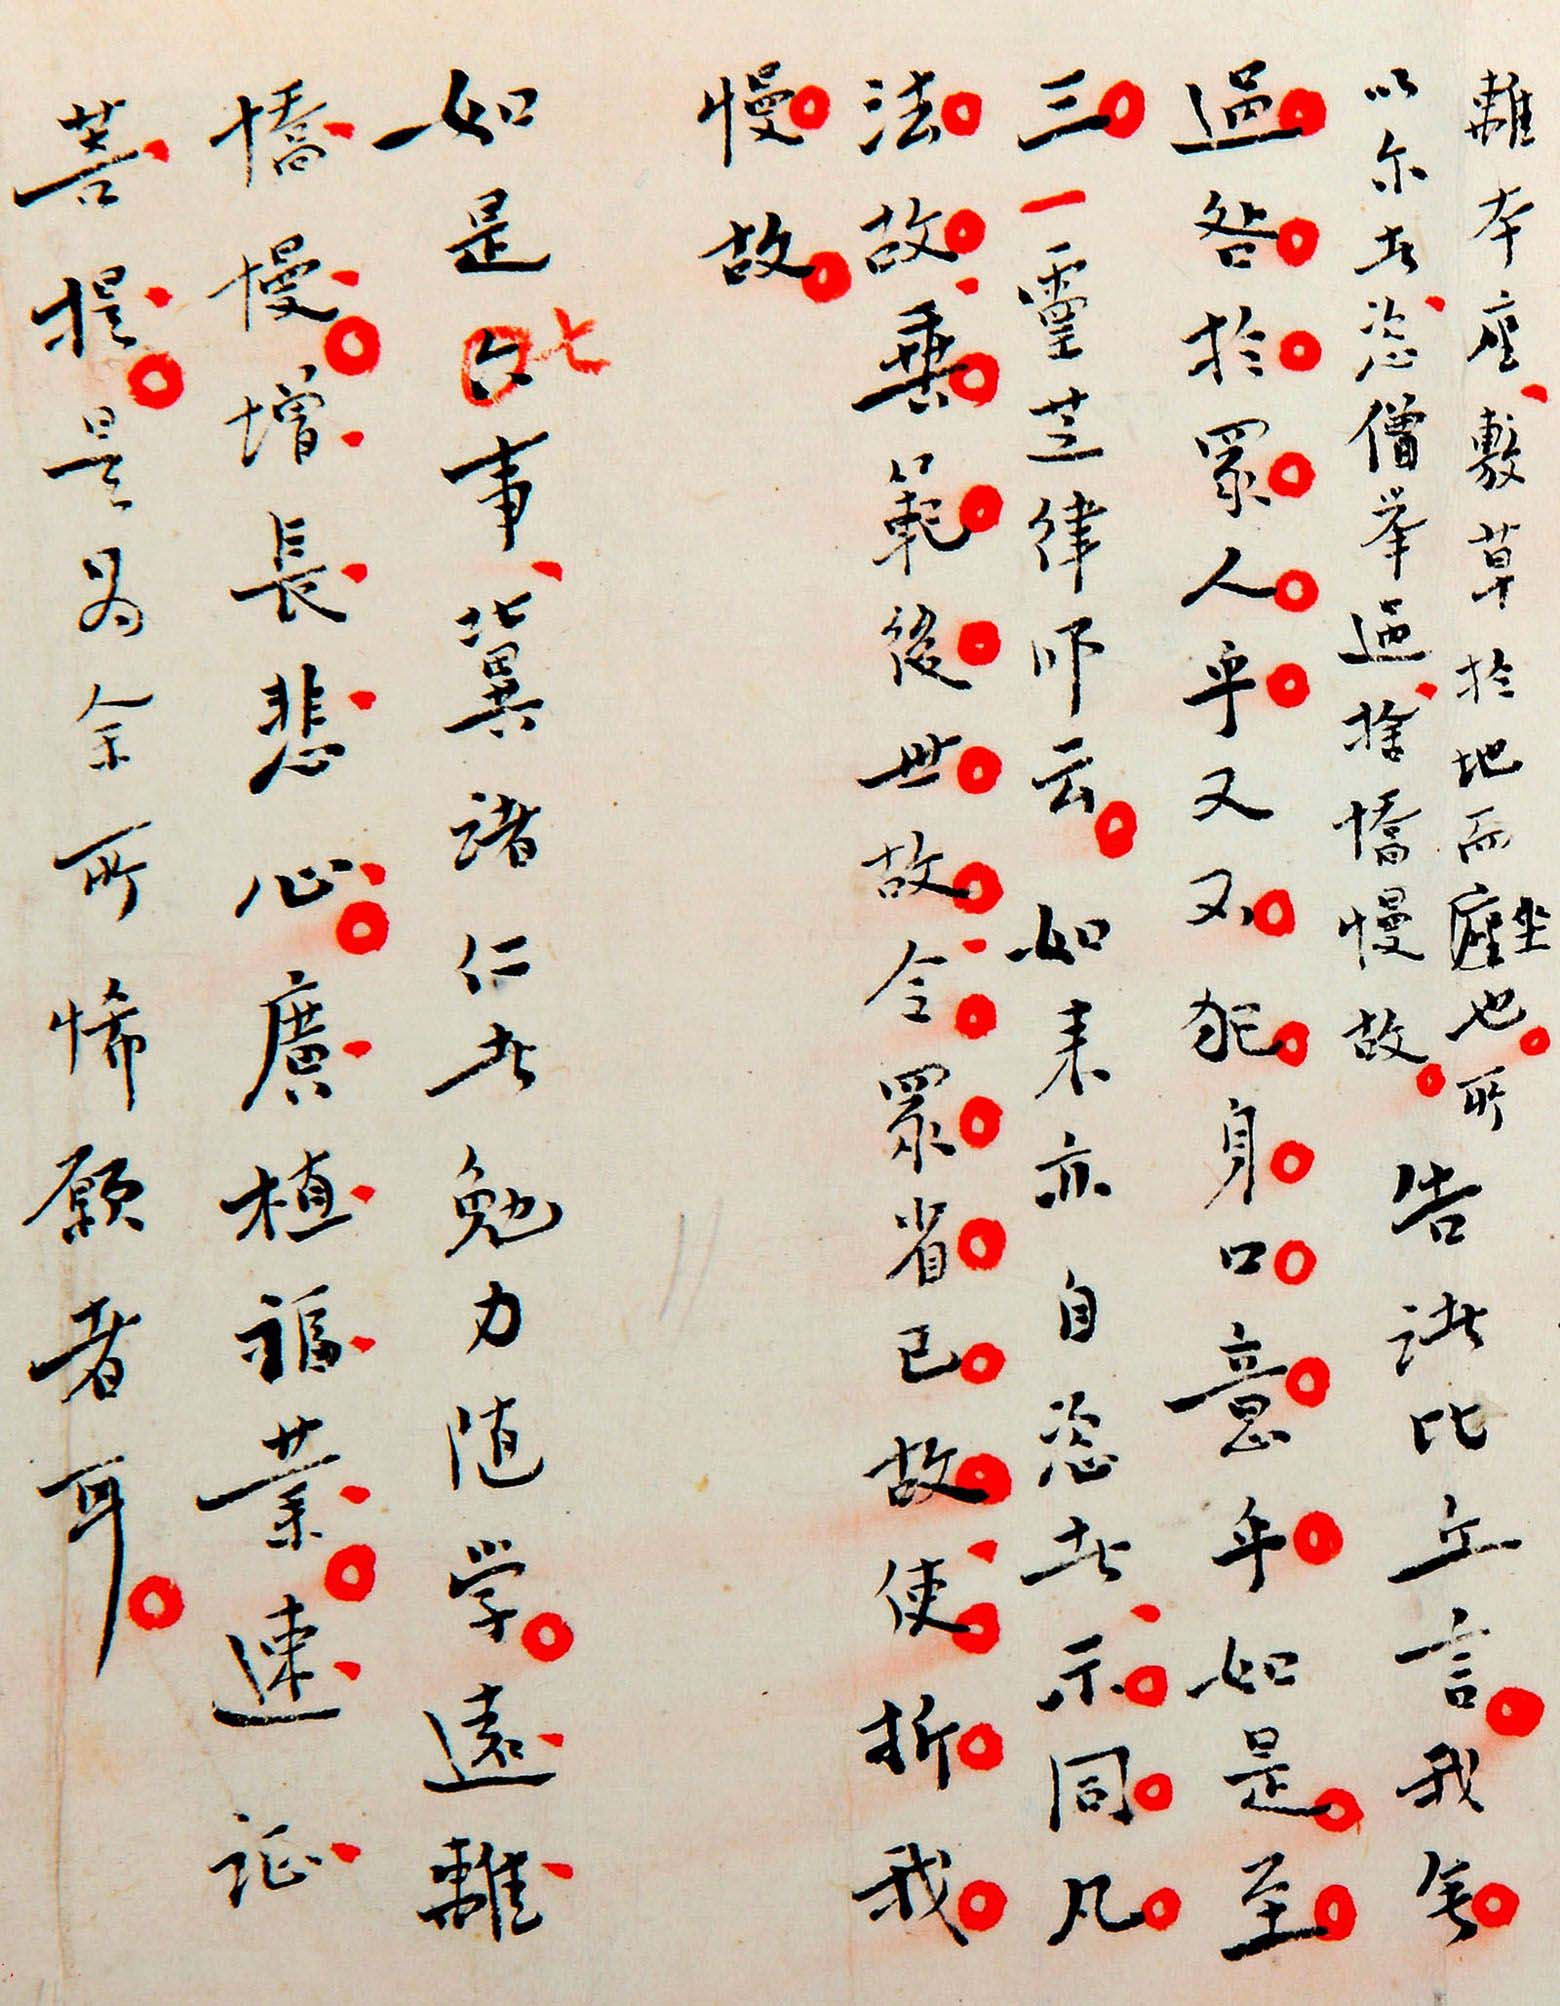 離本座敷草於地而座坐也所
以尔者恣僧举過捨憍慢故
告諸比丘言我無
過咎於眾人乎又不犯身口意乎如是至
三一靈芝律师云如来亦自恣者示同凡
法故乘範後世故令眾省己故使折我
慢故
如是六七事冀諸仁者勉力随学遠離
憍慢增長悲心廣植福業速证
菩提是為余所悕願者耳